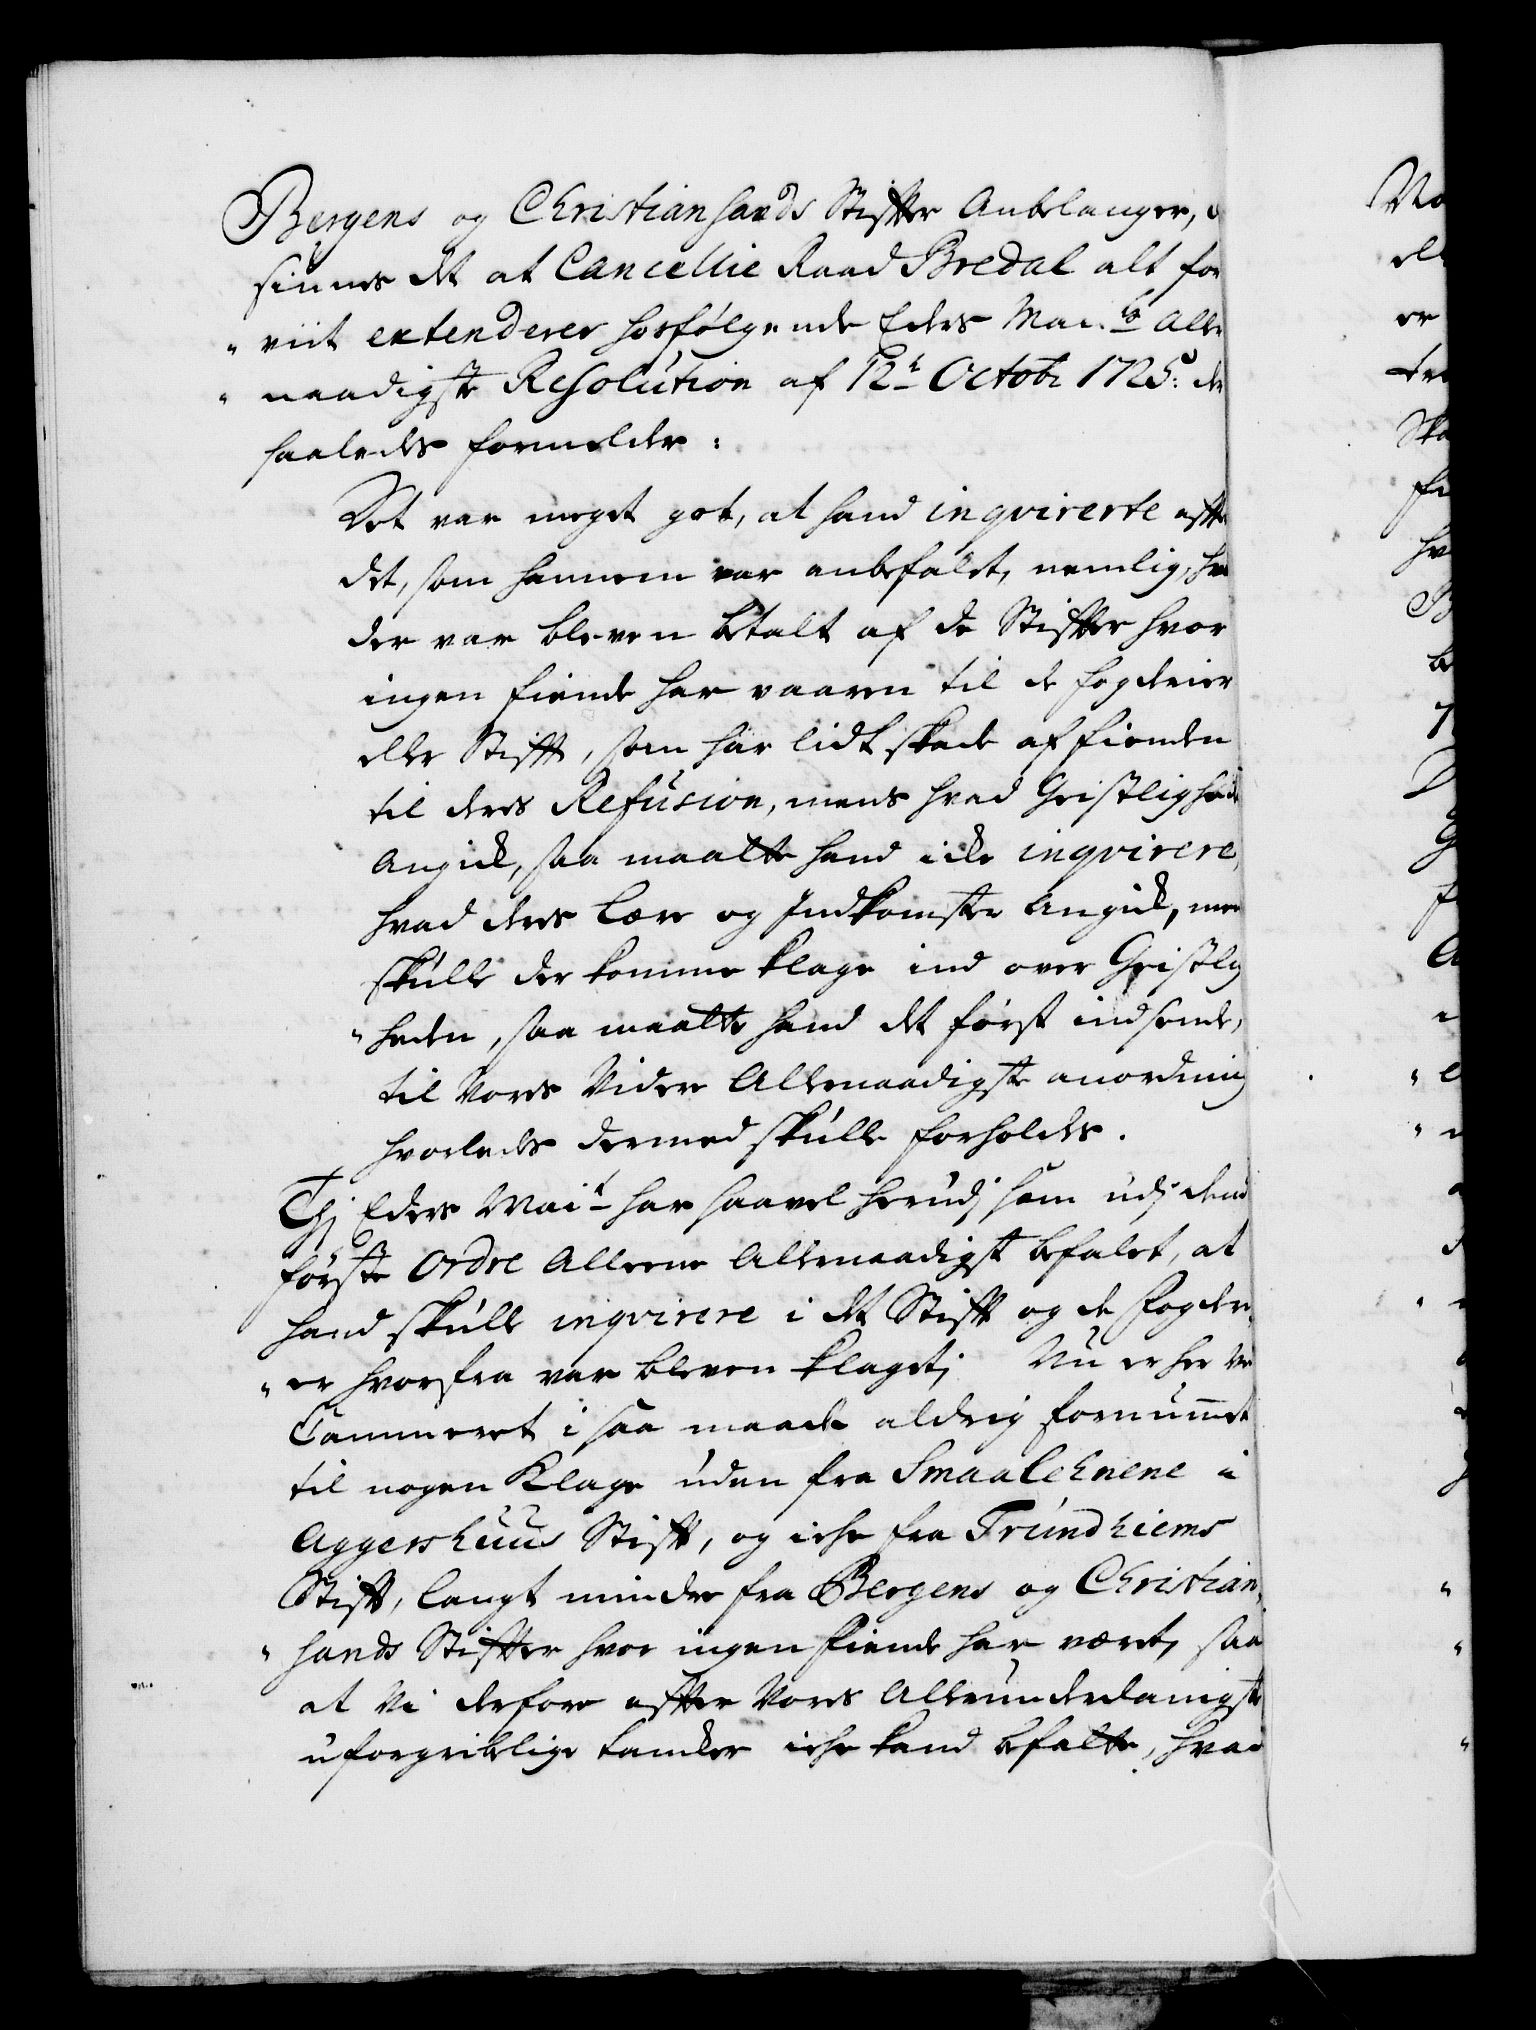 Bergens og Christiansands Stiffter Anbelanger,
siunes det at Cancellie Raad Bredal alt for
"viit extenderer hosfølgende Eders Mai.ts Aller
"naadigste Resolution af 12t Octobr 1725: der
saaledes formelder:
Det var meget got, at hand inqvirerte effter
det, som hannem var anbefalet, nemlig, hva
der var bleven betalt af de Stiffter hvor
ingen fiende har vaaren til de fogderier
eller Stifft, som har lidt skade af fienden
til deres Refusion, mens hvad Geistlighed
Angick, saa maatte hand icke inqvirere,
hvad deres Lære og Indkomster Angick, men
skulle der komme klage ind over Geistlig
"heden, saa maatte hand det først indsende,
til Vores Videre Allernaadigste anordning
hvorledes dermed skulle forholdes.
Thj Eders Mait har saavel herudj som udj dend
første Ordre Alleene Allernaadigst befalet, at
hand skulle inqvirere i det Stifft og de Fogderi,
"er hvorfra var bleven klaget; Nu er her Ve
Cammeret i saa maade aldrig fornummet
til nogen Klage uden fra Smaalehnene i
Aggershuus Stifft, og icke fra Trundhiems
Stifft, langt mindre fra Bergens og Christian,
"sands Stiffter hvor ingen Fiende har været, saa
at Vi derfore effter Vores Allerunderdanigste
uforgribelige tancker icke kand befatte, hvad